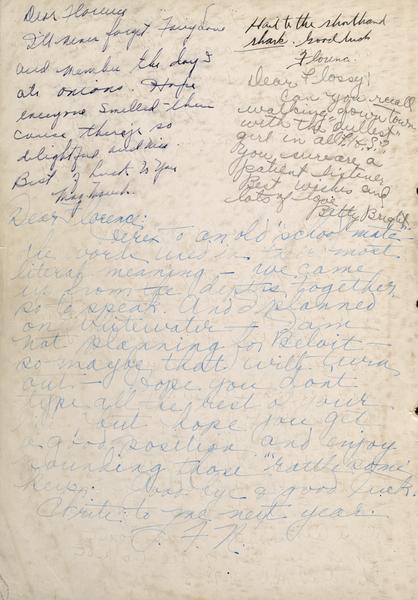 Dear Florence
I'll never forget
and the day I
ate onions. Hope
everyone smelled their
cause they're so
delightful and nice.
Best of luck to you
Hail to the shorthand
shark. Good luck
Florena.
Dear Flossy:
Can you recall
walking down town
with the "dullest"
girl in all
You sure are a
patient listener
Best wishes and
lots of
Betty Bright
Dear Florence:
Here's to an old school mate
the words used in their most
literal meaning - we came
up from the depths together
so to speak. And I planned
on Whitewater - I am
not planning for Beloit -
so maybe that will turn
out - Hope you don't
type all the rest of your
but hope you get
a good position and enjoy
pounding those "rattlesome"
keys. Good bye & good luck
Write to me next year.